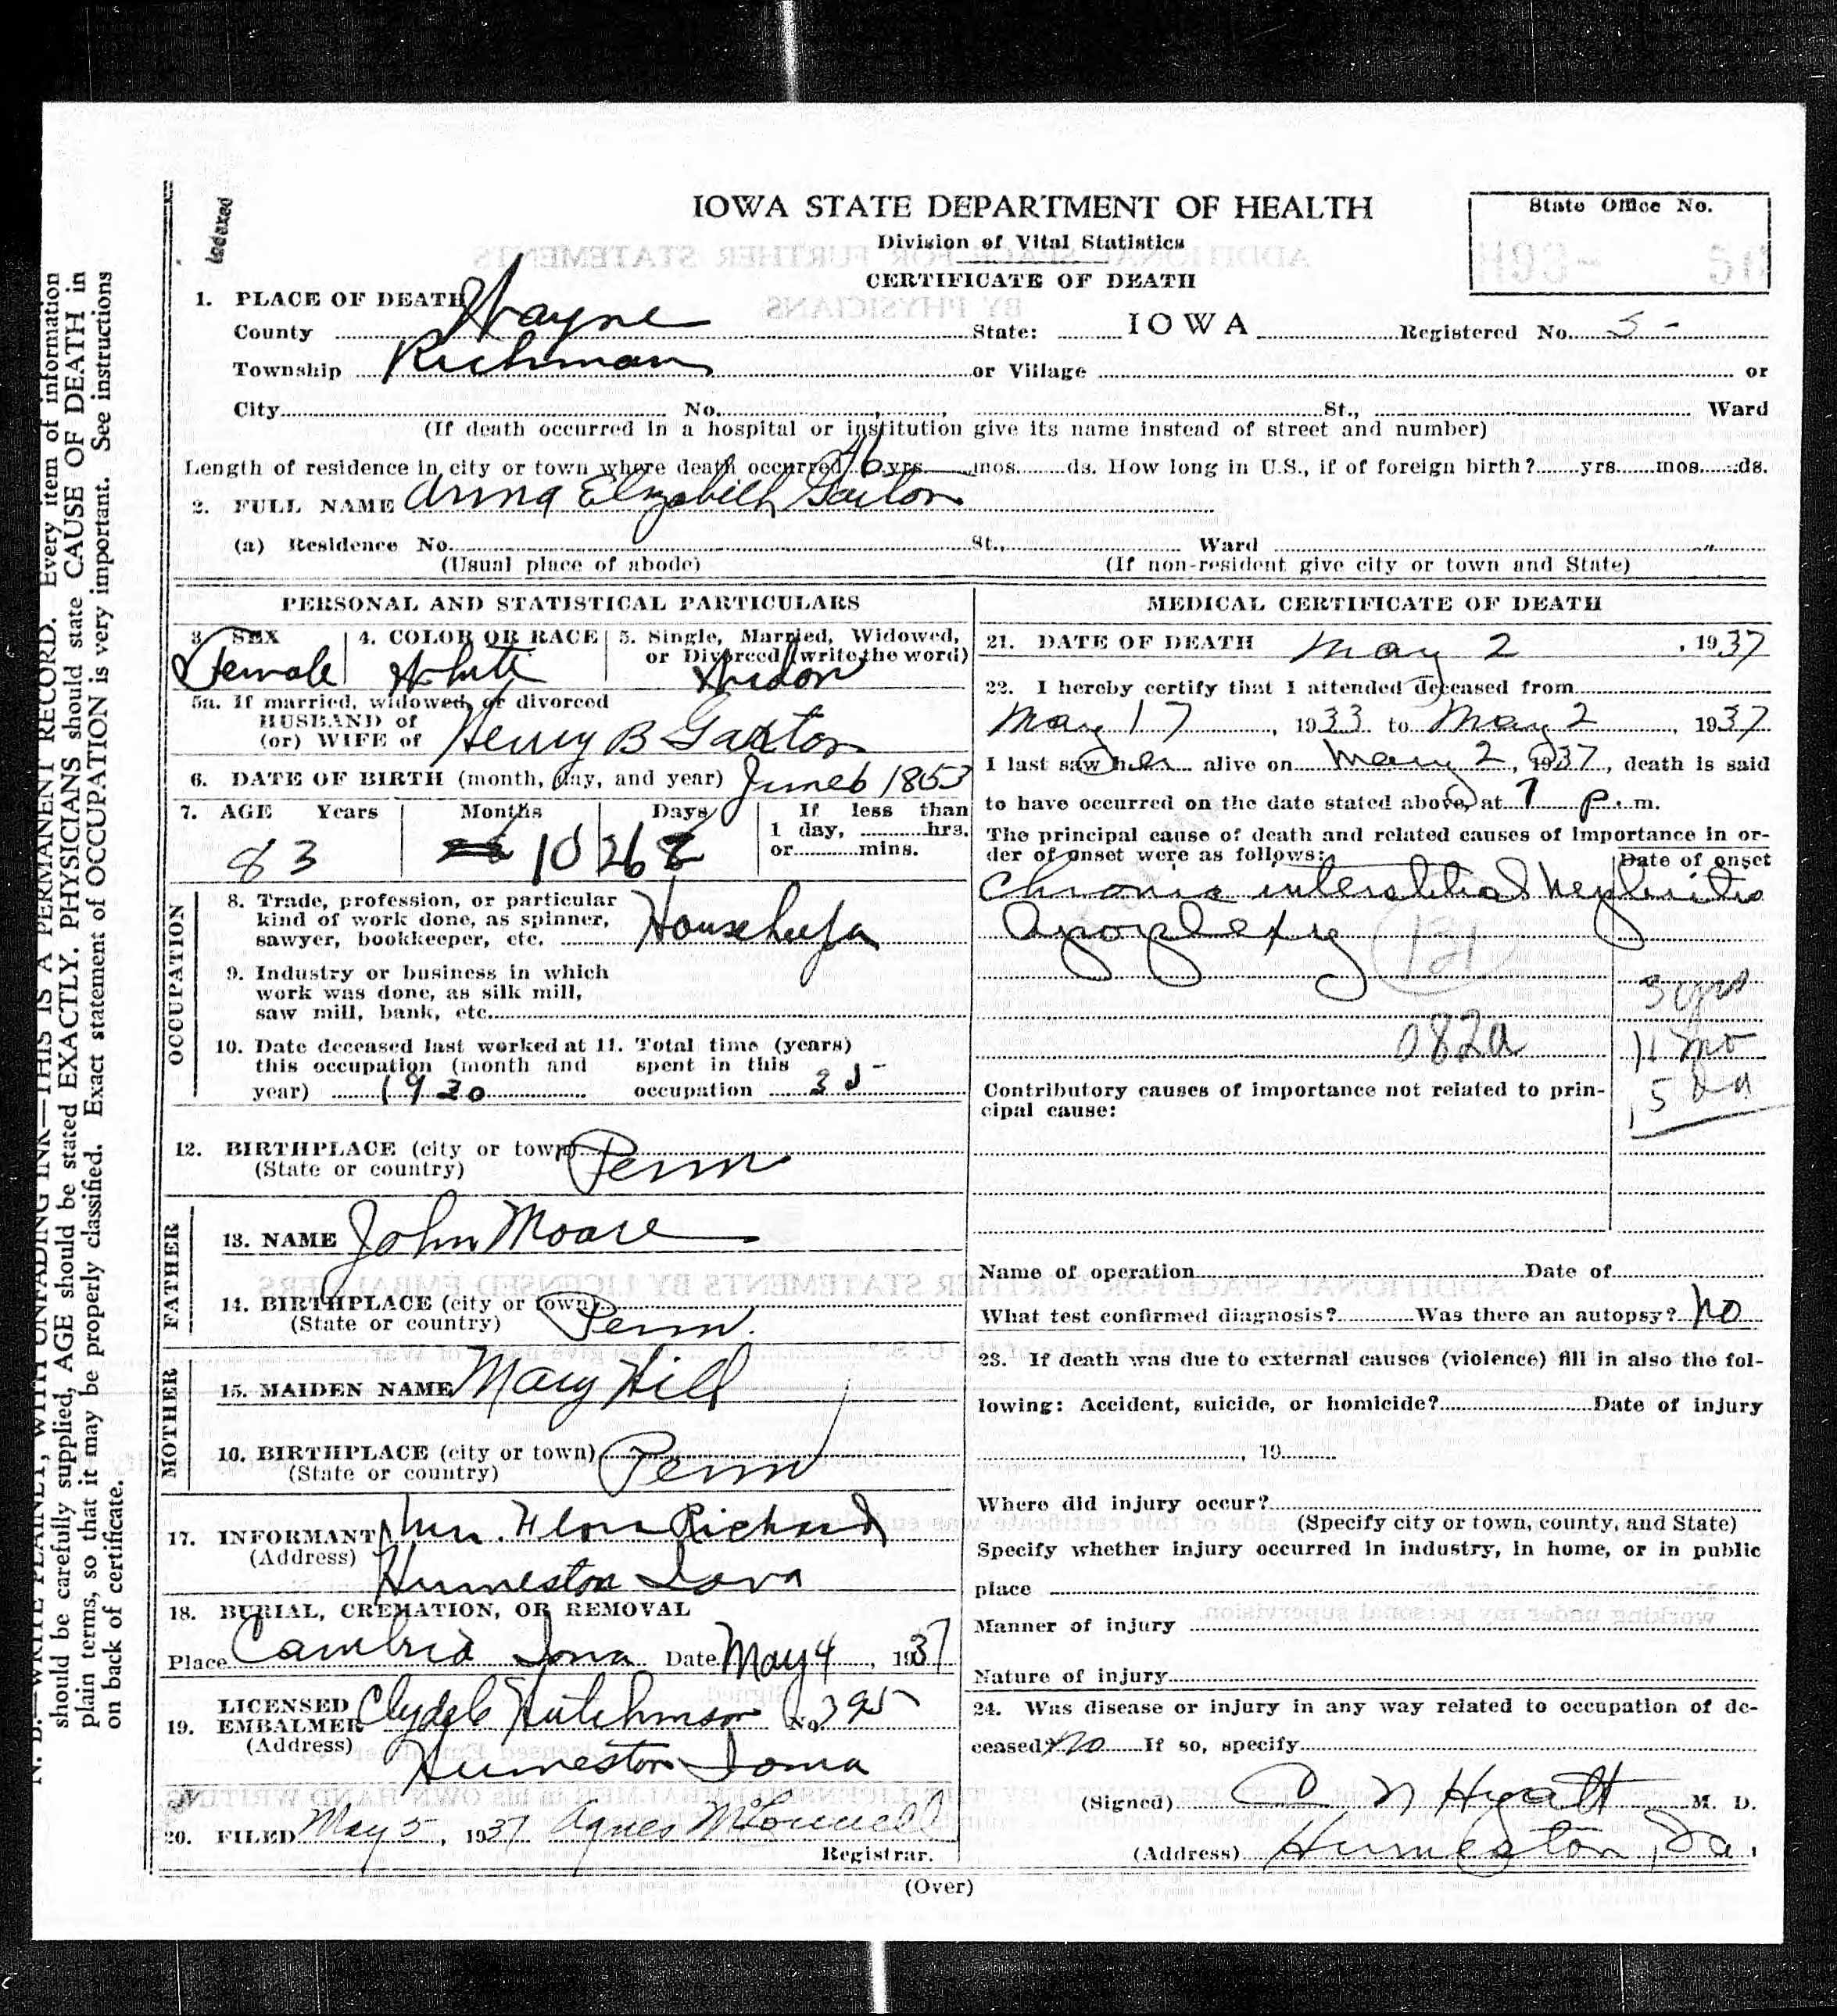 Indexed
IOWA STATE DEPARTMENT OF HEALTH
Division of Vital Statistics
CERTIFICATE OF DEATH
State Office No.
1. PLACE OF DEATH
County Wayne State: IOWA Registered No. 5-
Township Richman or Village or
City No. St., Ward
(If death occurred in a hospital or institution give its name instead of street and number)
Length of residence in city or town where death occurred 46 yrs. mos. ds. How long in U.S., if of foreign birth? yrs. mos. ds.
2. FULL NAME Anna Elizabeth Gaxton
(a) Residence No. St., Ward
(Usual place of abode) (If non-resident give city or town and State)
PERSONAL AND STATISTICAL PARTICULARS
3. SEX 4. COLOR OR RACE 5. Single, Married, Widowed, or Divorced (write the word)
Female White Widow
5a. If married, widowed, or divorced
HUSBAND of
(or) WIFE of Henry B Gaxton
6. DATE OF BIRTH (month, day, and year) June 6 1853
7. AGE Years Months Days If less than
1 day, hrs.
or mins.
83 10 26
OCCUPATION
8. Trade, profession, or particular
kind of work done, as spinner,
sawyer, bookkeeper, etc. Housekeeper
9. Industry or business in which
work was done, as silk mill,
saw mill, bank, etc.
10. Date deceased last worked at 11. Total time (years)
this occupation (month and spent in this
year) 1930 occupation 35
12. BIRTHPLACE (city or town)
(State or country) Penn
FATHER
13. NAME John Moore
14. BIRTHPLACE (city or town)
(State or country) Penn.
MOTHER
15. MAIDEN NAME Mary Hill
16. BIRTHPLACE (city or town)
(State or country) Penn
17. INFORMANT Mrs. Flora Richard
(Address) Humeston Iowa
18. BURIAL, CREMATION, OR REMOVAL
Place Cambria Iowa Date May 4, 1937
19. LICENSED EMBALMER Clyde C Hutchinson No. 395
(Address) Humeston Iowa
20. FILED May 5, 1937 Agnes McConnell
Registrar.
MEDICAL CERTIFICATE OF DEATH
21. DATE OF DEATH May 2, 1937
22. I hereby certify that I attended deceased from
May 17, 1933 to May 2, 1937
I last saw her alive on May 2, 1937, death is said
to have occurred on the date stated above, at 7 p. m.
The principal cause of death and related causes of importance in or-
der of onset were as follows:
Date of onset
Chronic interstitial Nephritis
Apoplexy 131
3 yrs
082a 11 mo
15 da
Contributory causes of importance not related to prin-
cipal cause:
Name of operation Date of
What test confirmed diagnosis? Was there an autopsy? no
23. If death was due to external causes (violence) fill in also the fol-
lowing: Accident, suicide, or homicide? Date of injury
, 19
Where did injury occur?
(Specify city or town, county, and State)
Specify whether injury occurred in industry, in home, or in public
place
Manner of injury
Nature of injury
24. Was disease or injury in any way related to occupation of de-
ceased? No If so, specify
(Signed) C N Hyatt M. D.
(Address) Humeston, Ia.
(Over)
N. B.—WRITE PLAINLY, WITH UNFADING INK—THIS IS A PERMANENT RECORD. Every item of information
should be carefully supplied, AGE should be stated EXACTLY. PHYSICIANS should state CAUSE OF DEATH in
plain terms, so that it may be properly classified. Exact statement of OCCUPATION is very important. See instructions
on back of certificate.